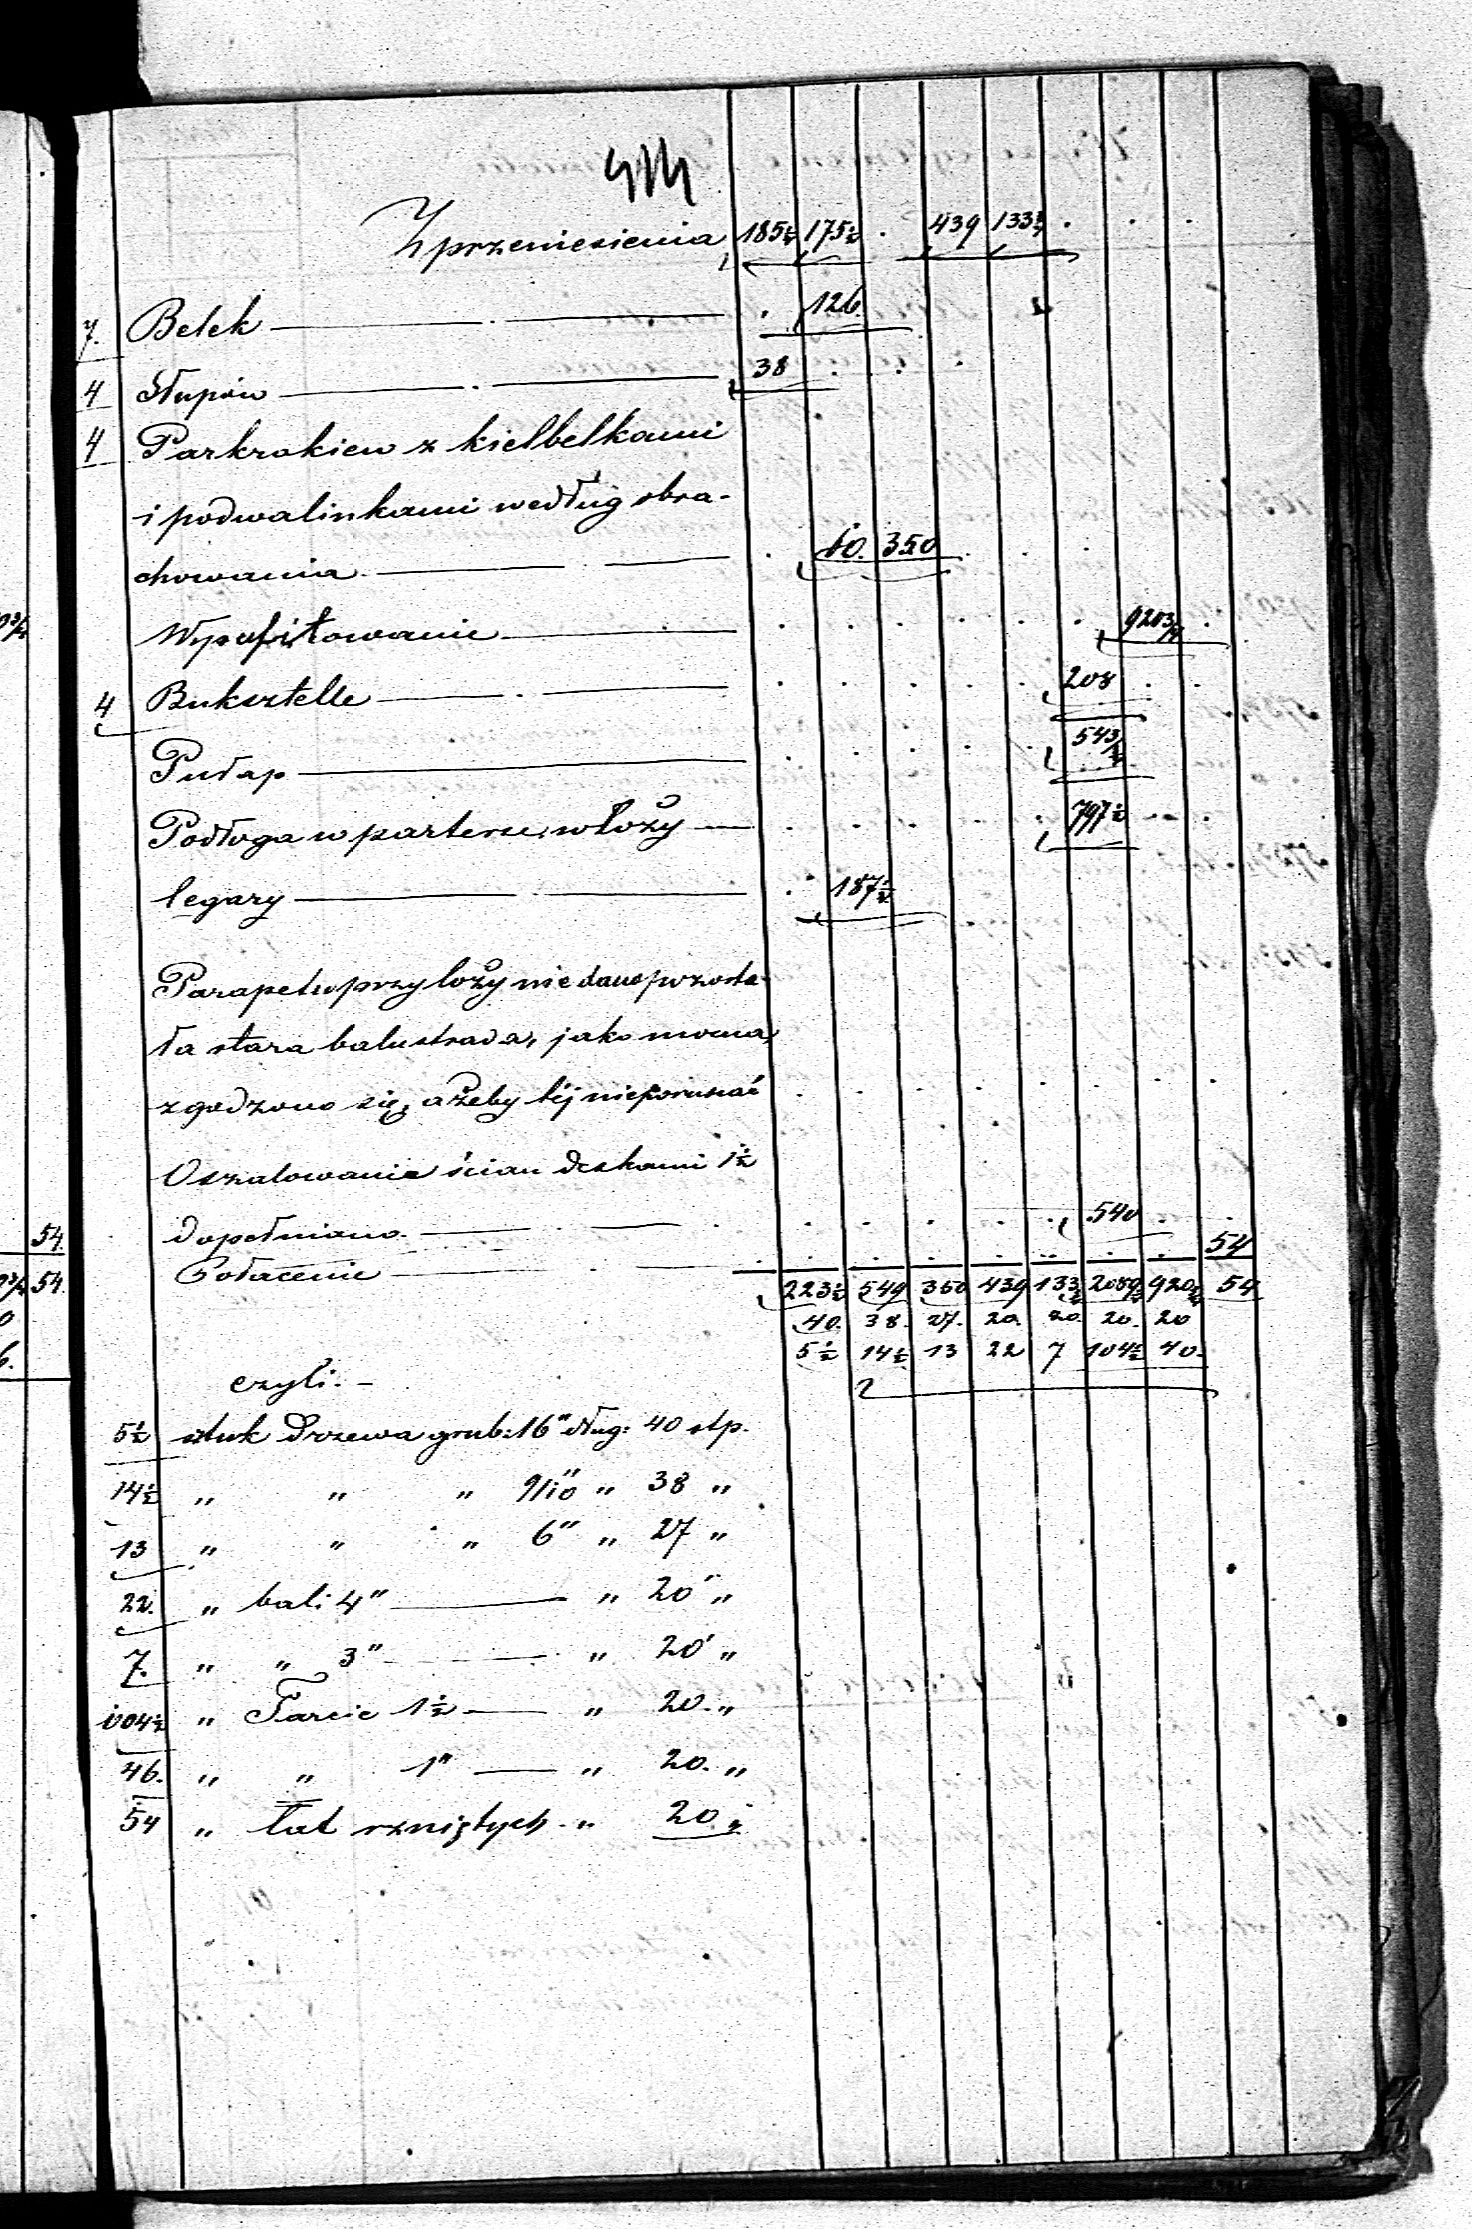 Z przeniesienia 185½ 175½ . 439 133¾ . . .
7. Belek . 126.
4 Słupów 38 . . .
4 Par krokiew z kielbelkami
i podwalinkami według obra-
chowania . 60. 350 . . .
Wysufitowanie . . . . . . 920¾ .
4 Buksztelle . . . . . 208 . .
Pułap . . . . . 543½
Podłoga w parterze, w łoży . . . . . 797½ . .
legary . 187½
Parapetu przy loży nie dano pozosta-
ła stara balustrada, jako mocna,
zgodzono się, ażeby téj nieporuszać . . . . . . . .
Oszalowanie ścian deskami 1½
dopełniono . . . . . 540 . .
Połacenie . . . . . . . 54
223½ 549 350 439 133¾ 2089½ 920¾ 54
40. 38. 27. 20. 20. 20. 20
5½ 14½ 13 22 7 104½ 40.
czyli. -
5½ sztuk Drzewa grub: 16" dług: 40 stp.
14½ " " " 9/10" " 38 "
13 " " " 6" " 27 "
22. " bali 4" " 20 "
7. " " 3" " 20 "
104½ " Tarcic 1½ " 20. "
46. " " 1" " 20. "
54 " Łat rzniętych. " 20. "
54.
54.